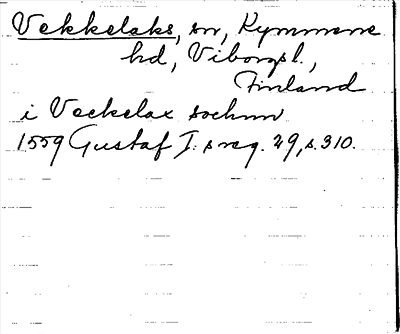 Vekkelaks, sn, Kymmene
hd, Viborgsl.,
Finland
i Veckelax sochnn
1559 Gustaf I:s reg. 29, s. 310.